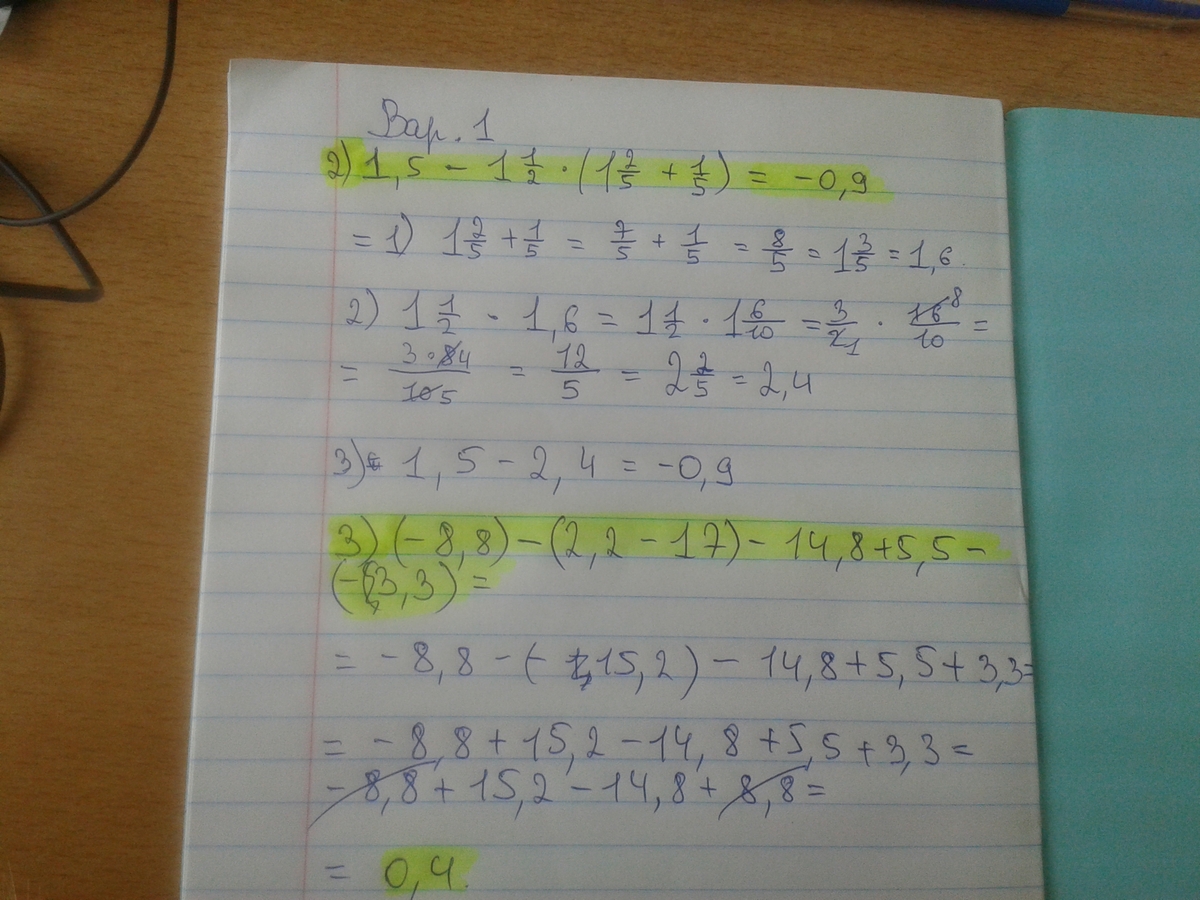 Вар. 1
2) 1,5 - 1 1/2 · (1 2/5 + 1/5) = -0,9
= 1) 1 2/5 + 1/5 = 7/5 + 1/5 = 8/5 = 1 3/5 = 1,6.
2) 1 1/2 · 1,6 = 1 1/2 · 1 6/10 = 3/2 1 · 16 8/10 =
= 3·8 4/10 5 = 12/5 = 2 2/5 = 2,4
3) 1,5 - 2,4 = -0,9
3) (-8,8) - (2,2 - 17) - 14,8 + 5,5 -
(-3,3) =
= -8,8 - (-15,2) - 14,8 + 5,5 + 3,3 =
= -8,8 + 15,2 - 14,8 + 5,5 + 3,3 =
-8,8 + 15,2 - 14,8 + 8,8 =
= 0,4.